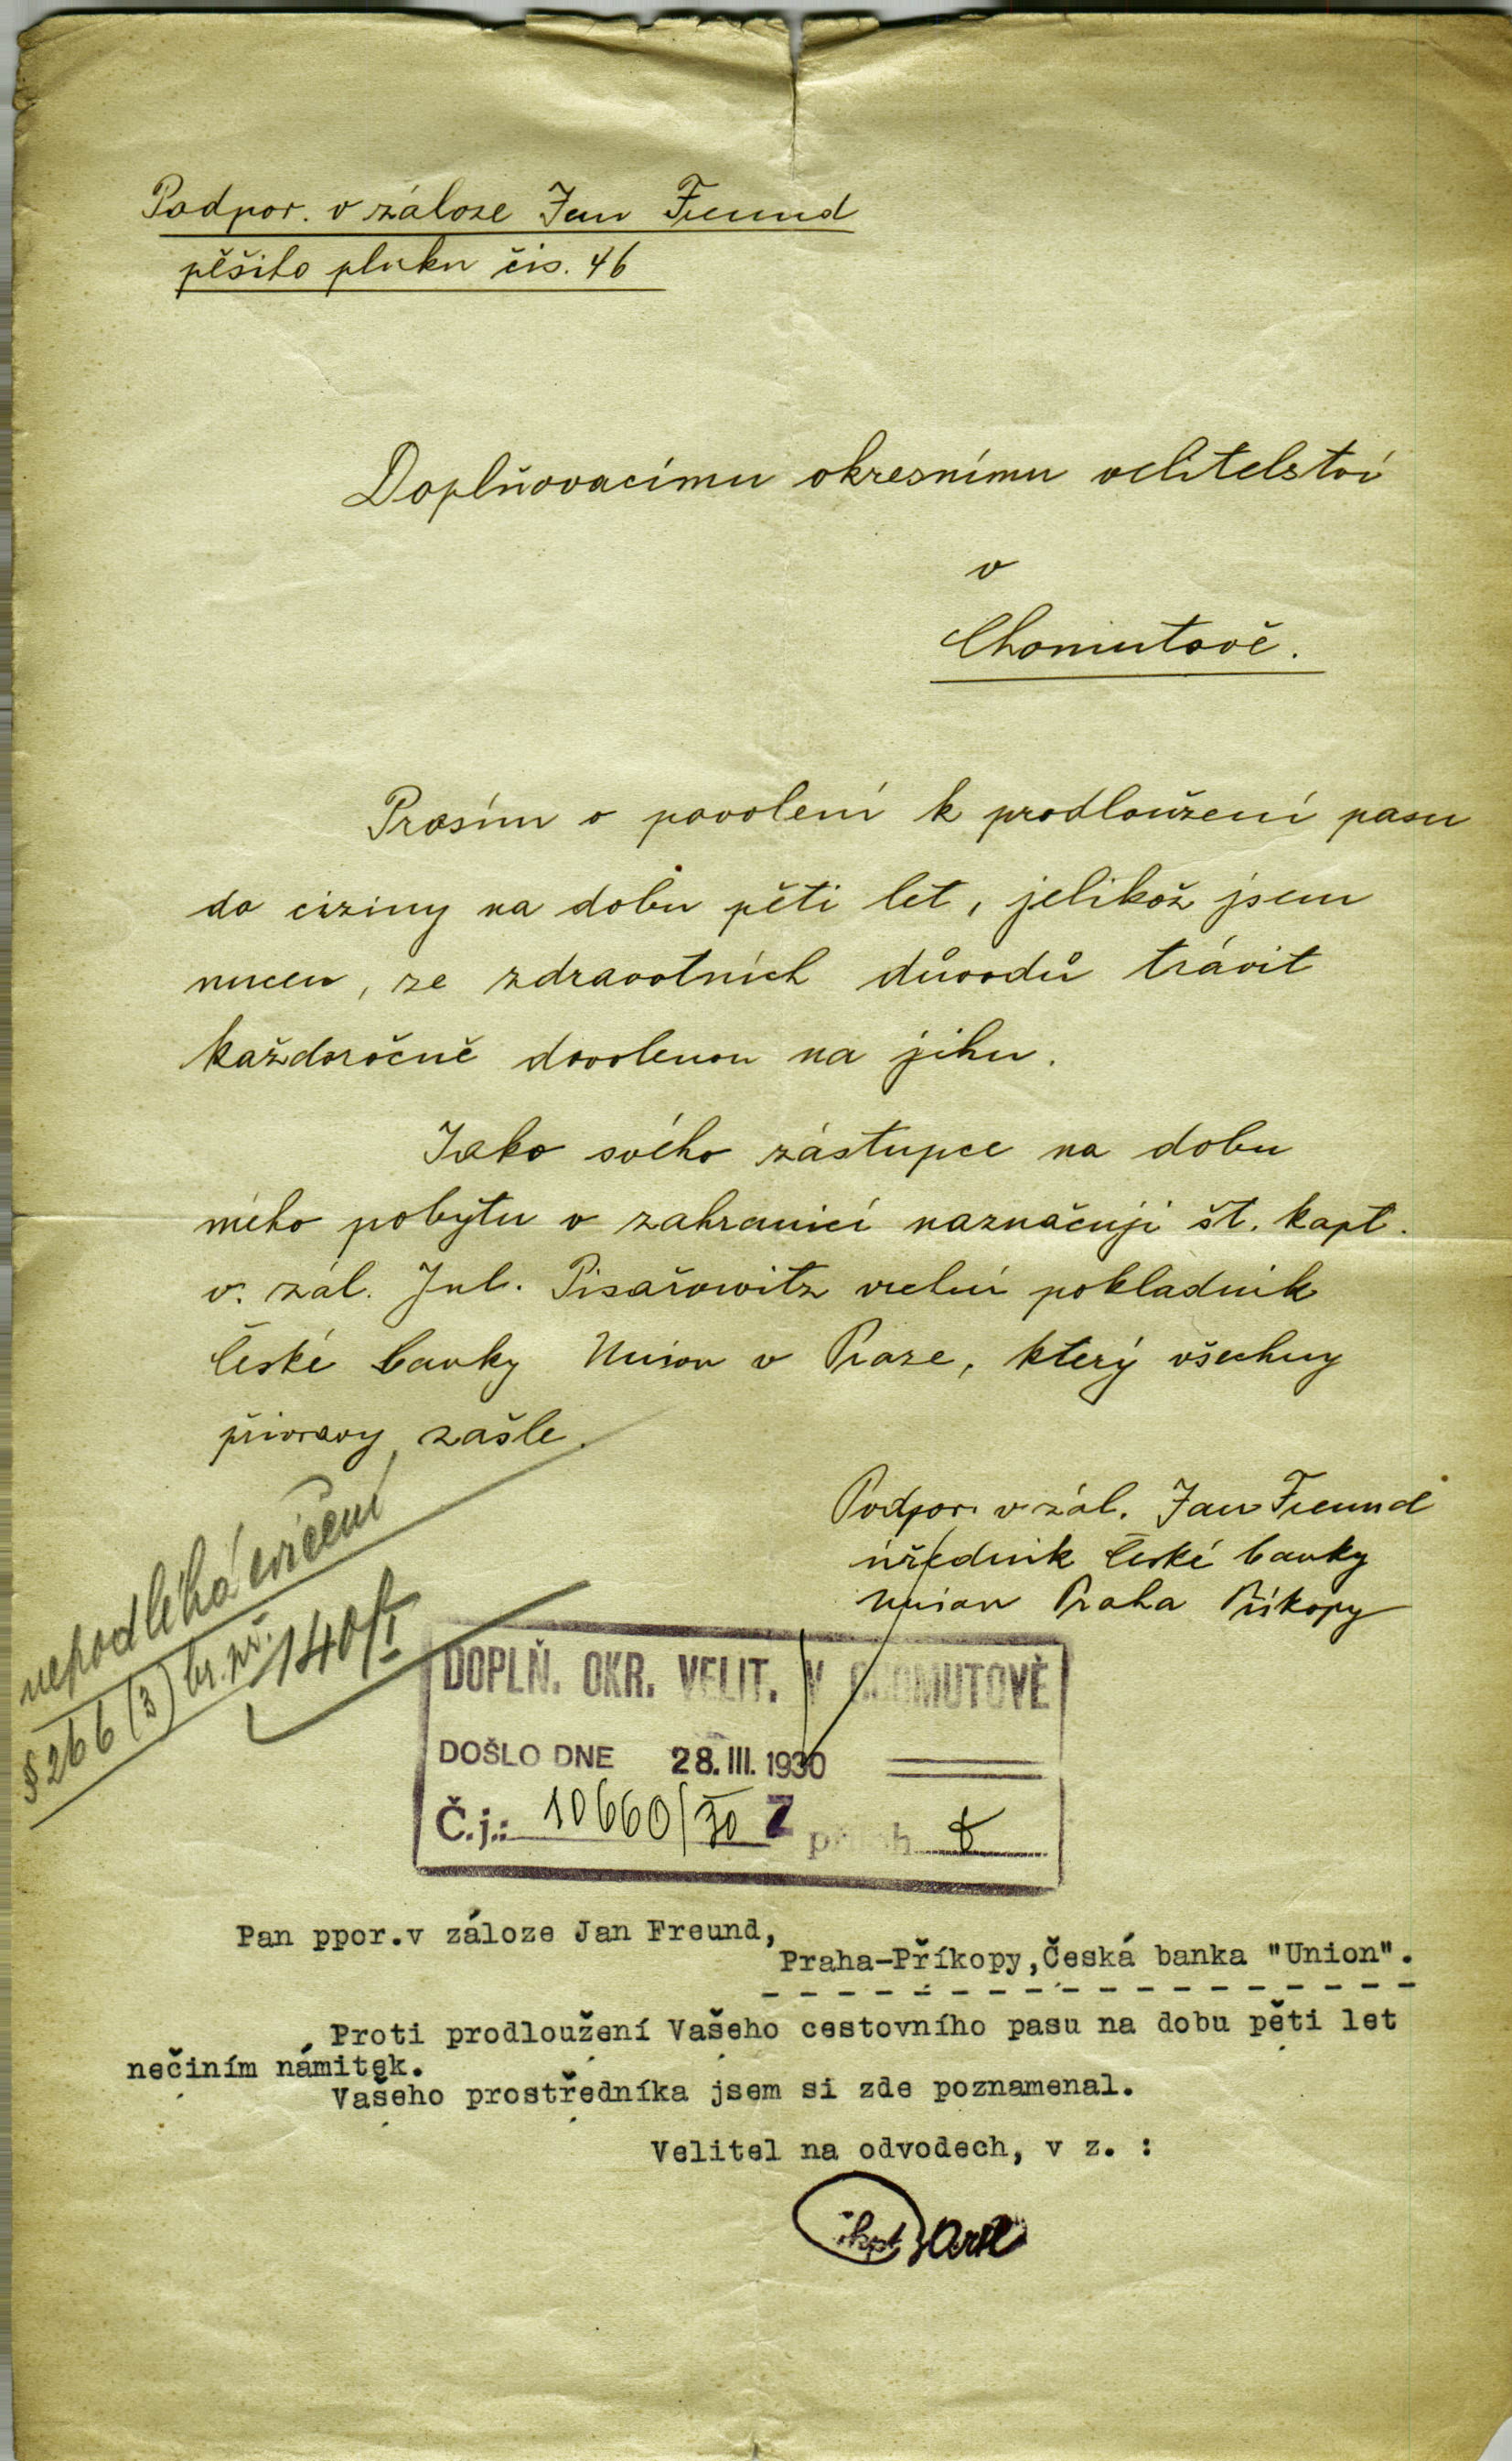 Podpor. v záloze Jan Freund
pěšího pluku čís. 46
Doplňovacímu okresnímu velitelství
v
Chomutově.
Prosím o povolení k prodloužení pasu
do ciziny na dobu pěti let, jelikož jsem
nucen, ze zdravotních důvodů trávit
každoročně dovolenou na jihu.
Jako svého zástupce na dobu
mého pobytu v zahranicí naznačuji št. kapt.
v. zál. Jul. Pisařowitz vrchní pokladník
České banky Union v Praze, který všechny
přípravy zašle.
Podpor. v zál. Jan Freund
úředník České banky
Union Praha Příkopy
nepodléhá cvičení
§ 266 (3) br. př.
140/I
DOPLŇ. OKR. VELIT. V CHOMUTOVĚ
DOŠLO DNE 28. III. 1930
Č.j.: 10660/30 Z příloh
Pan ppor.v záloze Jan Freund,
Praha-Příkopy,Česká banka "Union".
Proti prodloužení Vašeho cestovního pasu na dobu pěti let
nečiním námitek.
Vašeho prostředníka jsem si zde poznamenal.
Velitel na odvodech, v z. :
škpt